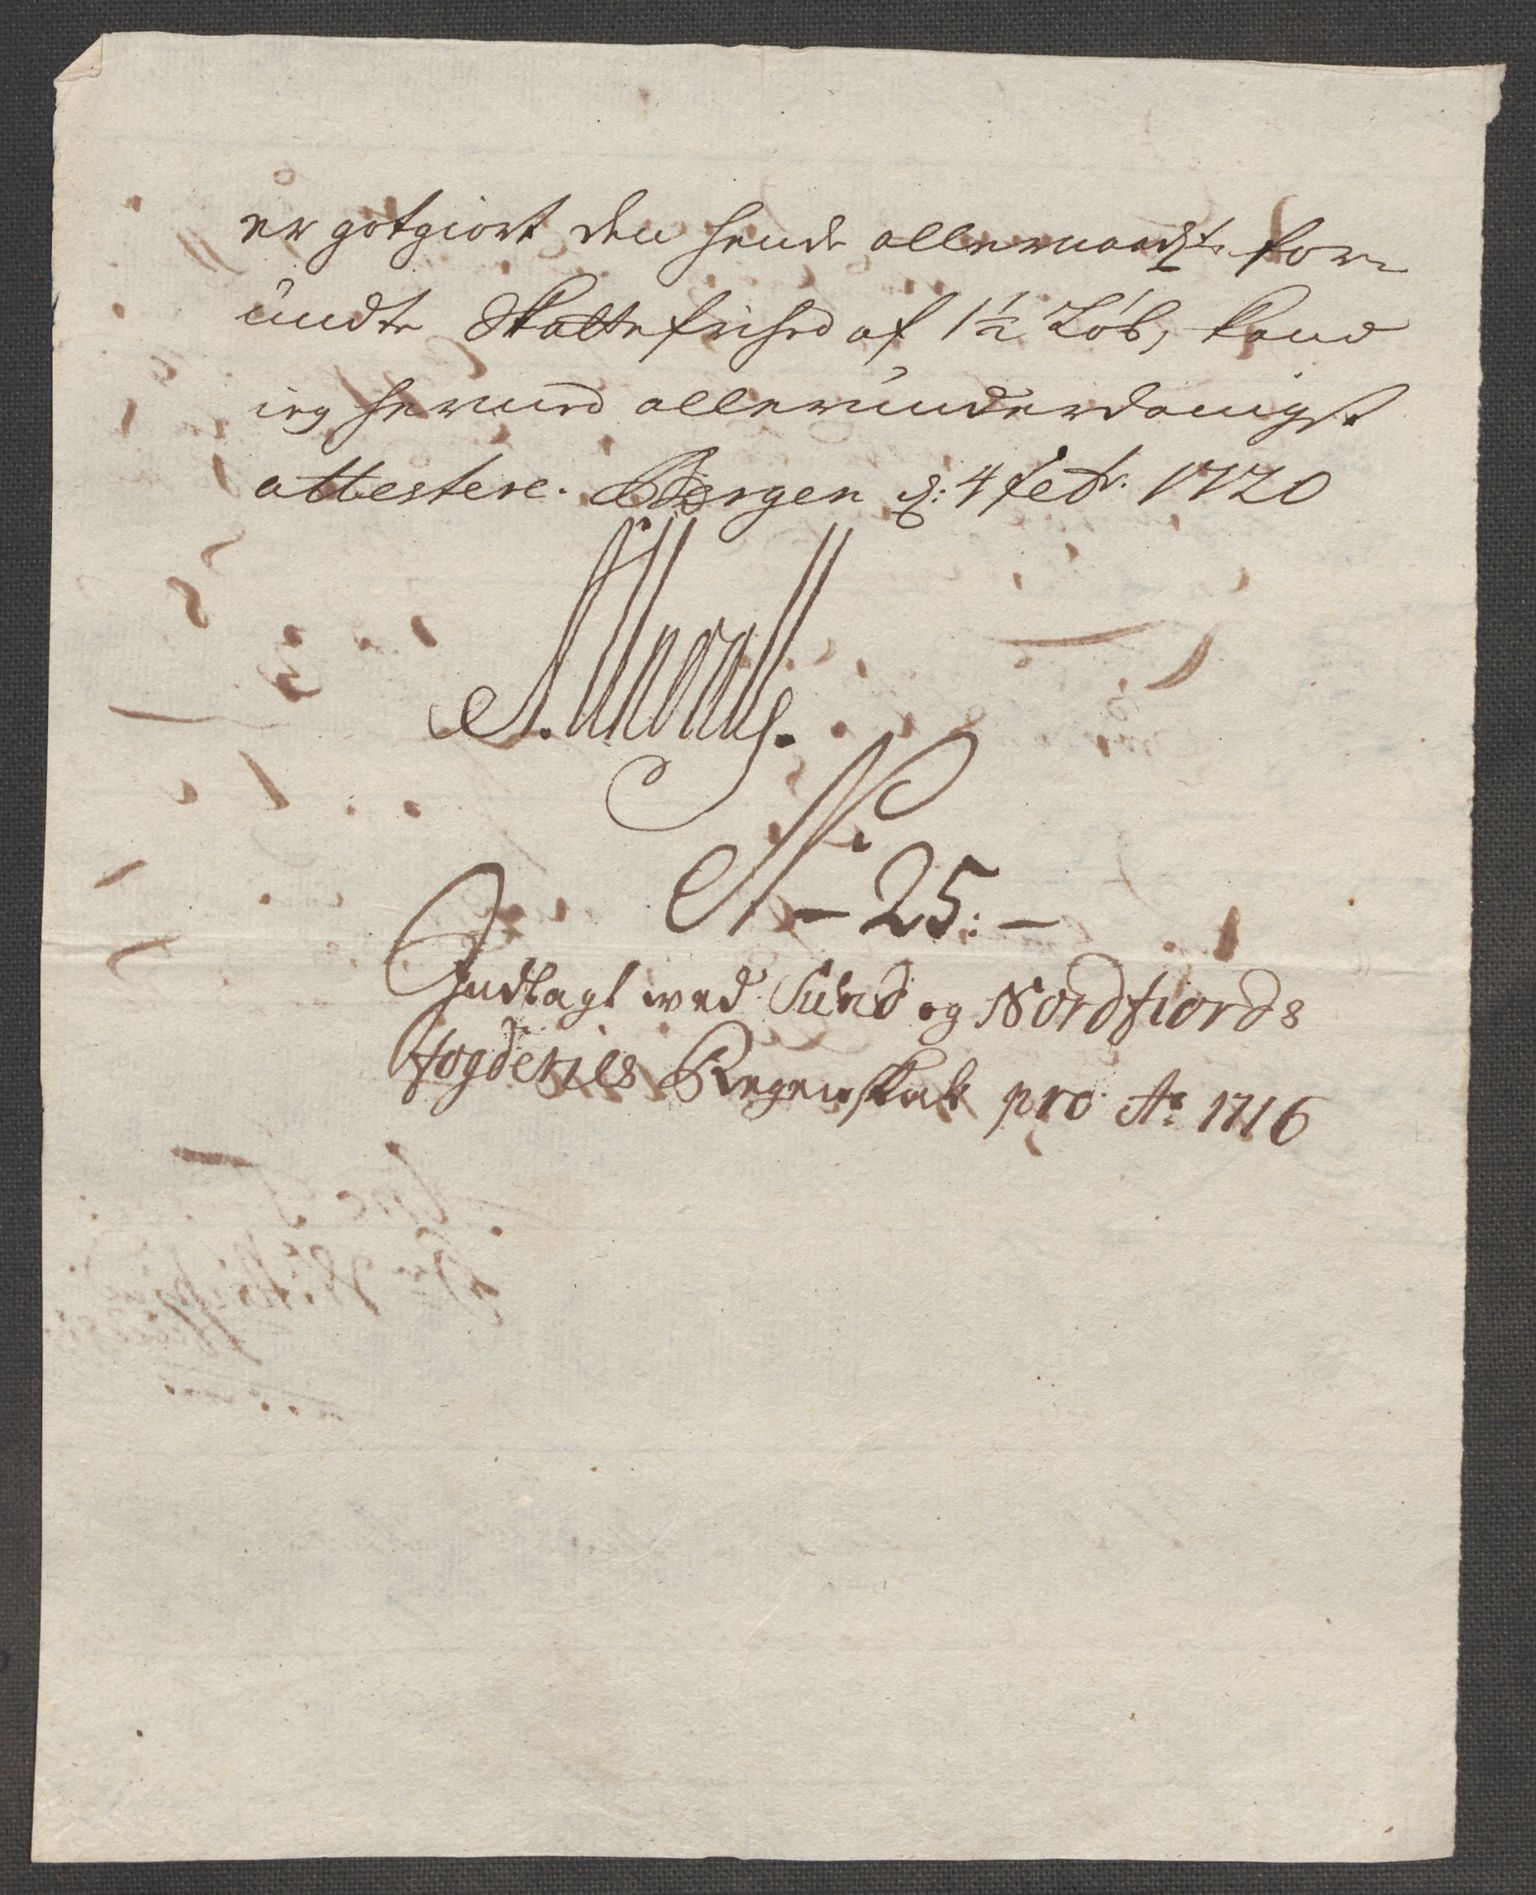 er gotgiort den hende allernaadst for
undte Skattefrihed af 1½ Løb, kand
ieg herved allerunderdanigst
attestere. Bergen d: 4 febr. 1720
N: - 25: -
Indlagt wed Sund og Nordfiords
fogderies Regenskab pro Ao: 1716